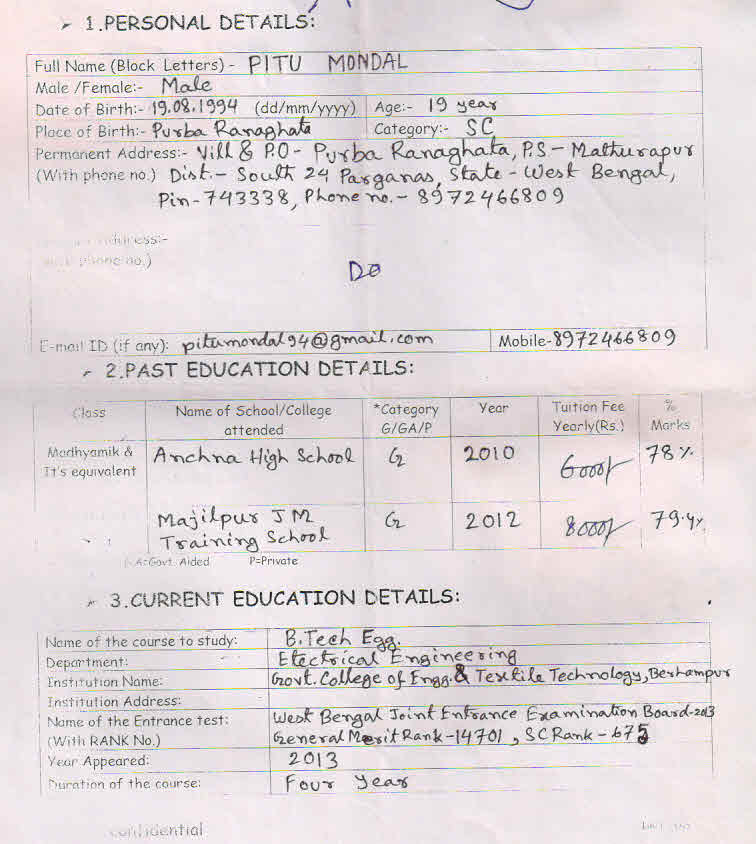 1.PERSONAL DETAILS:
Full Name (Block Letters) - PITU MONDAL
Male /Female:- Male
Date of Birth:- 19.08.1994 (dd/mm/yyyy) Age:- 19 year
Place of Birth:- Purba Ranaghata Category:- SC
Permanent Address:- Vill & P.O - Purba Ranaghata, P.S - Mathurapur
(With phone no.) Dist. - South 24 Parganas, State - West Bengal,
Pin-743338, Phone no. - 8972466809
address:-
phone no.)
Do
E-mail ID (if any): pitumondal94@gmail.com Mobile-8972466809
2.PAST EDUCATION DETAILS:
Class Name of School/College attended *Category G/GA/P Year Tuition Fee Yearly(Rs.) % Marks
Madhyamik & It's equivalent Anchna High School G 2010 6000/- 78%
Majilpur J M Training School G 2012 8000/- 79.4%
A=Govt. Aided P=Private
3.CURRENT EDUCATION DETAILS:
Name of the course to study: B.Tech Egg.
Department: Electrical Engineering
Institution Name: Govt. College of Engg. & Textile Technology, Berhampur
Institution Address:
Name of the Entrance test: West Bengal Joint Entrance Examination Board-2013
(With RANK No.) General Merit Rank-14701, SC Rank - 675
Year Appeared: 2013
Duration of the course: Four Year
confidential